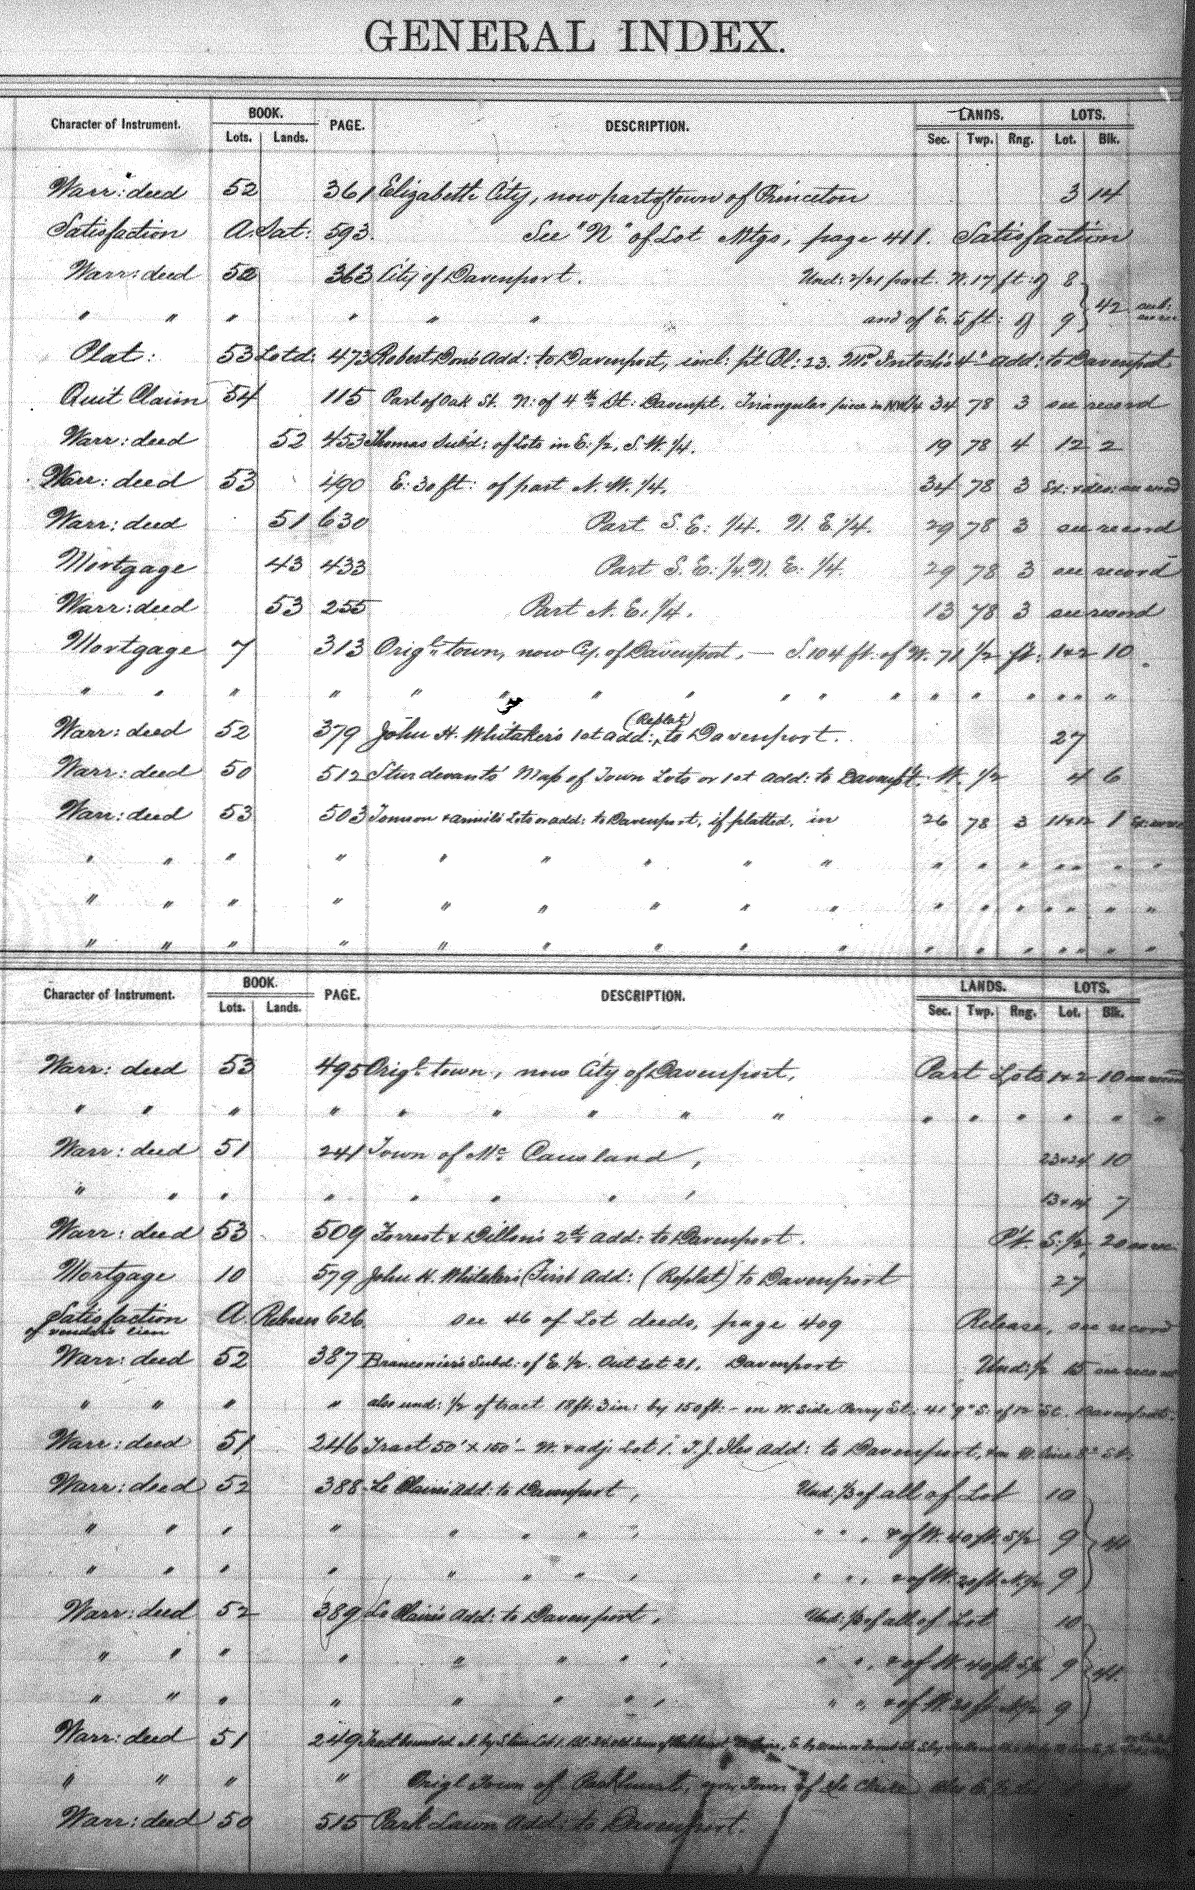 GENERAL INDEX.
Character of Instrument. BOOK. Lots. Lands. PAGE. DESCRIPTION. LANDS. Sec. Twp. Rng. LOTS. Lot. Blk.
Warr: deed 52 361 Elizabeth City, now part of town of Princeton 3 14
Satisfaction A. Sat: 593. See "N" of Lot Mtgs, page 411. Satisfaction
Warr: deed 52 363 City of Davenport. Und: 2/21 part. W. 17 ft: of 8
" " " " " " and of E. 5 ft: of 9 } 42
Plat: 53 Lotd: 473 Robert Don's Add: to Davenport, incl: p't Bl: 23. Mc Intosh's 4" add: to Davenport
Quit Claim 54 115 Part of Oak St. N: of 4th St: Davenpt. Triangular piece in NW 1/4 34 78 3 see record
Warr: deed 52 453 Thomas Subd: of Lots in E. 1/2, S. W. 1/4. 19 78 4 12 2
Warr: deed 53 490 E. 30 ft: of part N. W. 1/4. 34 78 3
Warr: deed 51 630 Part S. E: 1/4. N. E. 1/4. 29 78 3 see record
Mortgage 43 433 Part S. E: 1/4. N. E: 1/4. 29 78 3 see record
Warr: deed 53 255 Part N. E: 1/4. 13 78 3 see record
Mortgage 7 313 Orig'l town, now Cy. of Davenport, — S. 104 ft: of W. 71 1/2 ft: 1+2 10
" " " " " " " " " " " " " " " " "
Warr: deed 52 379 John H. Whitaker's 1st add: (Replat) to Davenport. 27
Warr: deed 50 512 Sturdevants' Map of Town Lots or 1st Add: to Davenpt. W. 1/2 4 6
Warr: deed 53 503 lots or add: to Davenport, if platted, in 26 78 3 11+12 1
" " " " " " " " " " " " " " " "
" " " " " " " " " " " " " " " "
" " " " " " " " " " " " " " " "
Character of Instrument. BOOK. Lots. Lands. PAGE. DESCRIPTION. LANDS. Sec. Twp. Rng. LOTS. Lot. Blk.
Warr: deed 53 495 Orig'l town, now City of Davenport, Part Lots 1+2 10
" " " " " " " " " " " " " "
Warr: deed 51 241 Town of Mc Causland, 23+24 10
" " " " " " " " 13+14 7
Warr: deed 53 509 Forrest & Dillon's 2d add: to Davenport. Pt. S. 1/2, 20
Mortgage 10 579 John H. Whitaker's First Add: (Replat) to Davenport 27
Satisfaction of vendor's lien A. Releases 626 see 46 of Lot deeds, page 409 Release, see record
Warr: deed 52 387 Subd: of E. 1/2. Out Lot 21, Davenport Und: 1/2 15 see record
" " " " also und: 1/2 of tract 18 ft: 3 in: by 150 ft: - on W. side Perry St: 41' 9" S. of 12" St. Davenport.
Warr: deed 51 246 Tract 50' x 150' - W. & adj: Lot 1. T. J. Iles add: to Davenport,
Warr: deed 52 388 Le Claire's Add: to Davenport, Und: 1/3 of all of Lot 10
" " " " " " " " " " , & of W. 40 ft. S 1/2 9
" " " " " " " " " " , & of W. 20 ft. N. 1/2 9
Warr: deed 52 389 Le Claire's Add: to Davenport, Und: 1/3 of all of Lot 10
" " " " " " " " " " , & of W. 40 ft. S 1/2 9
" " " " " " " " " " & of W. 20 ft. N 1/2 9
Warr: deed 51 249 Tract bounded N. by
" " " " Orig'l Town of Parkhurst, now Town of Le Claire
Warr: deed 50 515 Park Lawn Add: to Davenport.